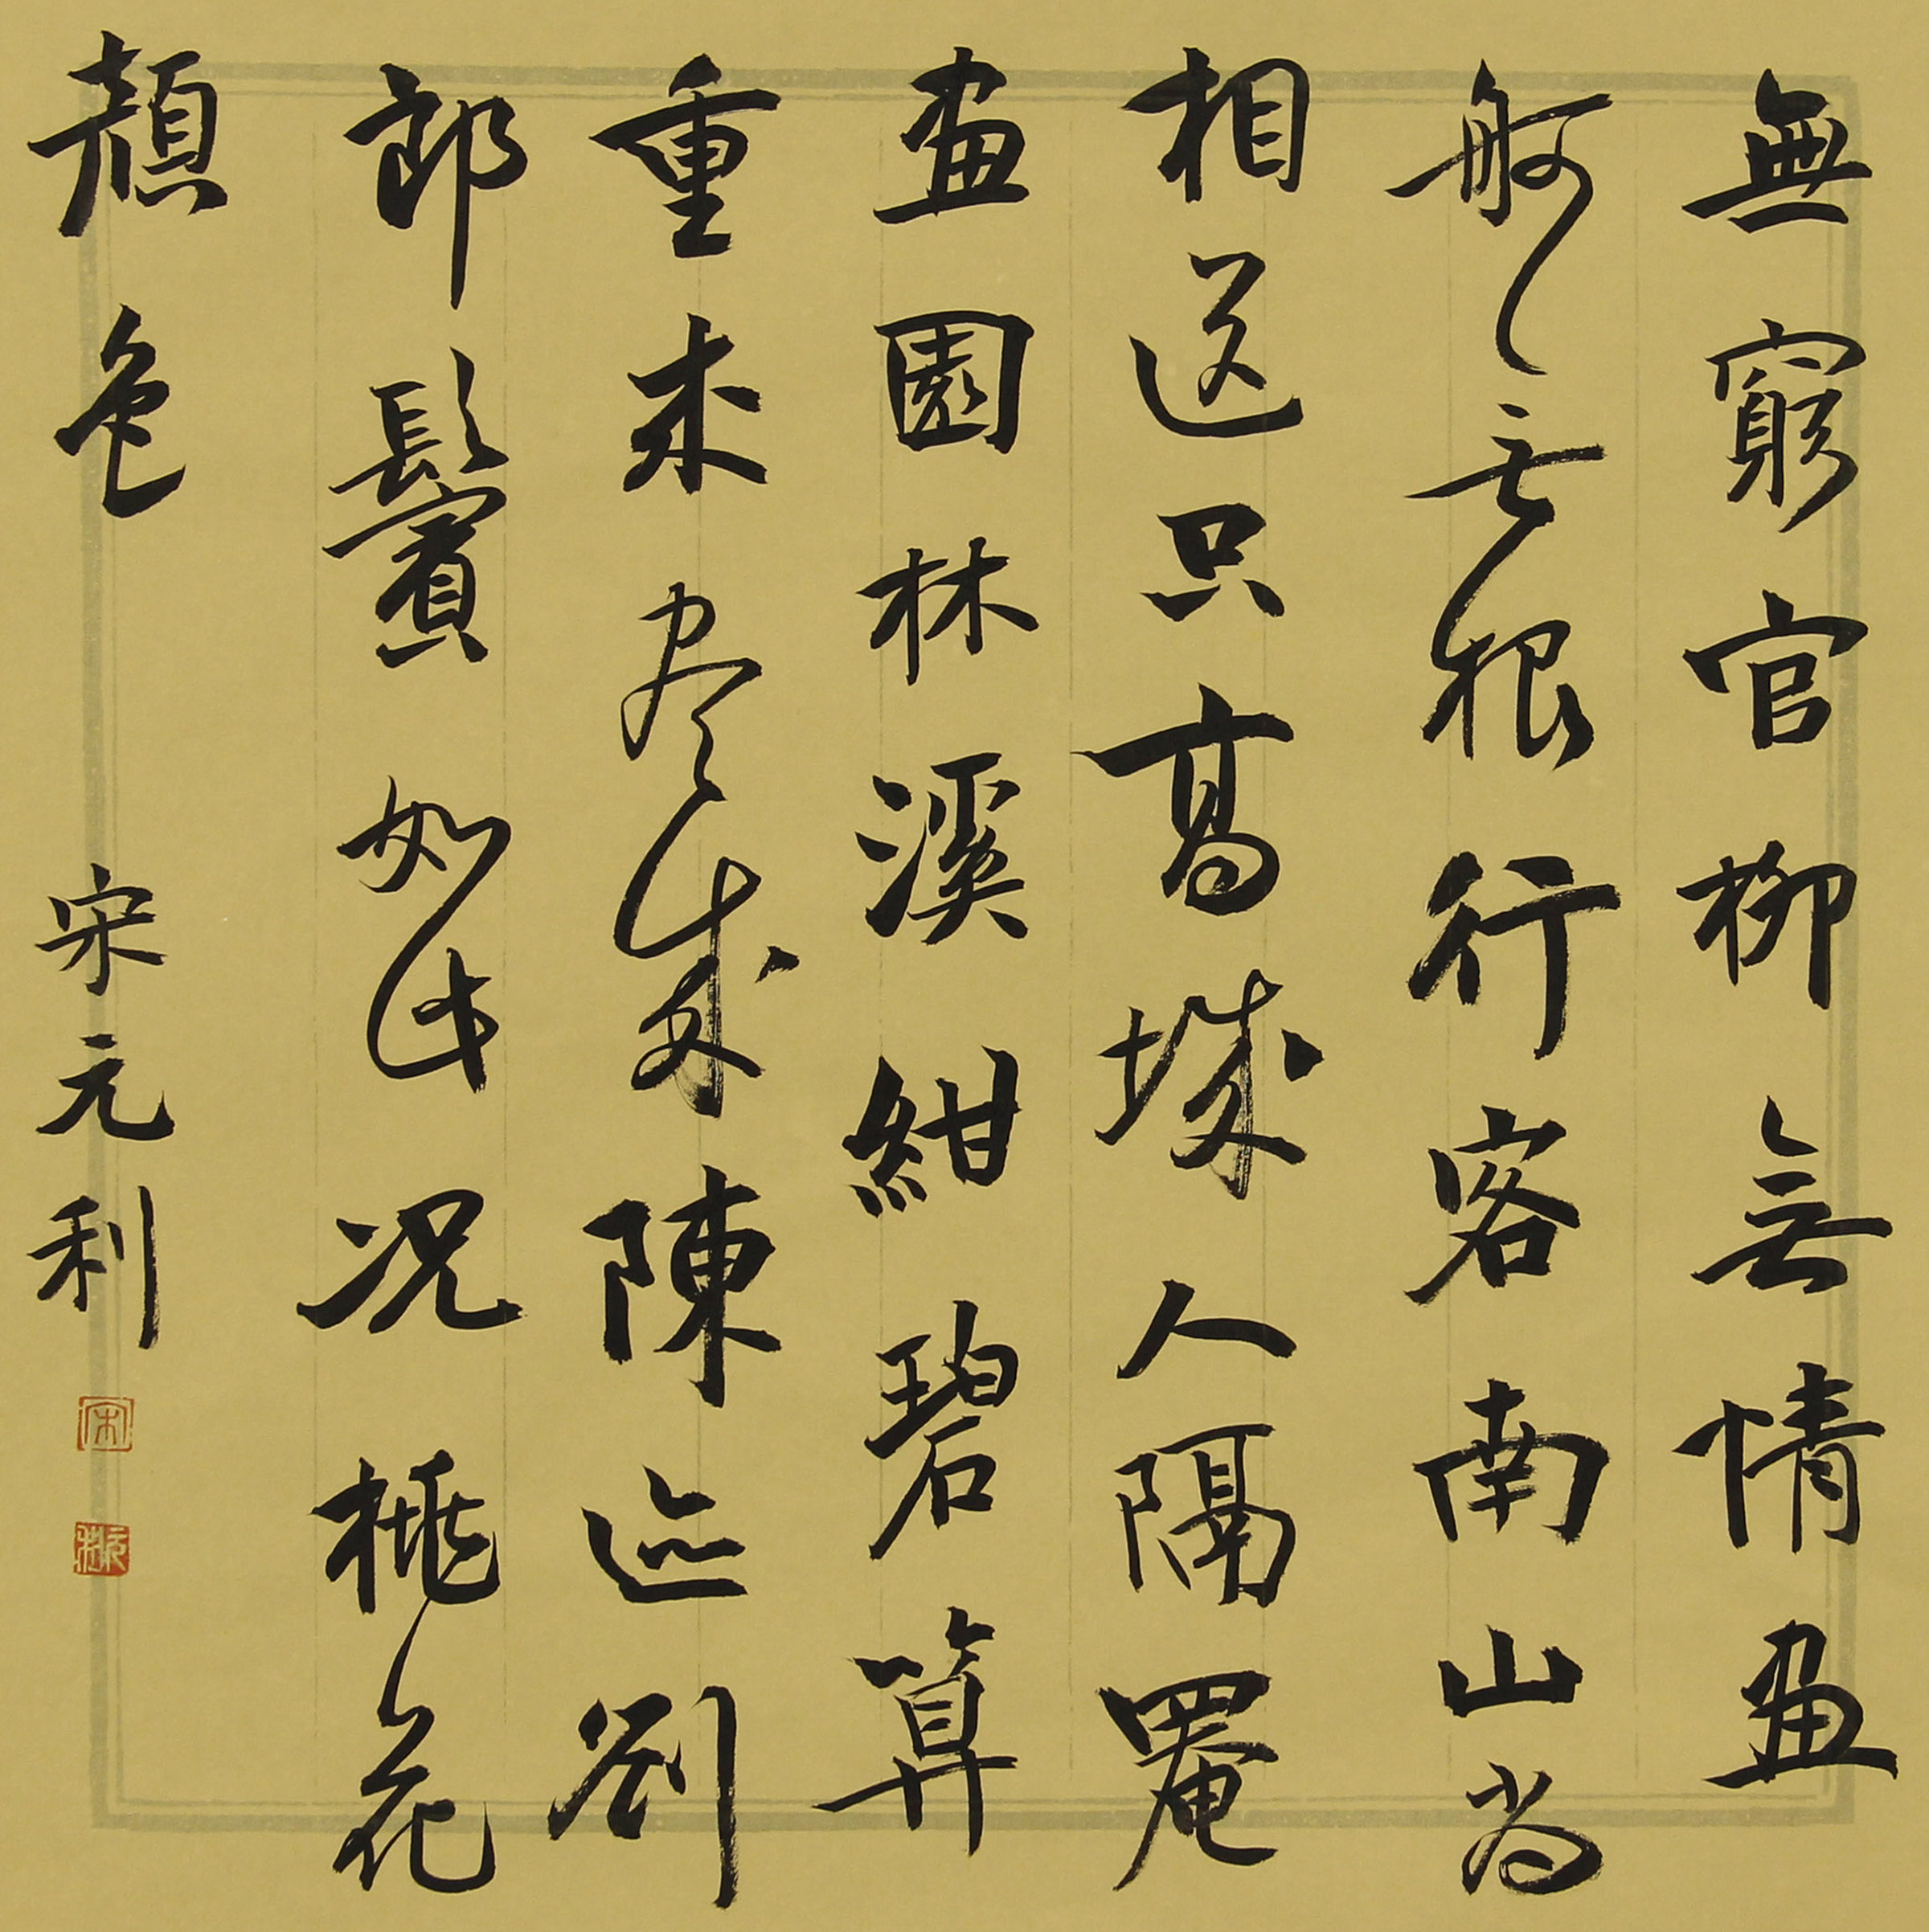 無窮官柳無情畫
舸無根行客南山尚
相送只高城人隔罨
畫園林溪紺碧算
重來盡成陳迹劉
郎鬢如此況桃花
顏色
宋元利
宋